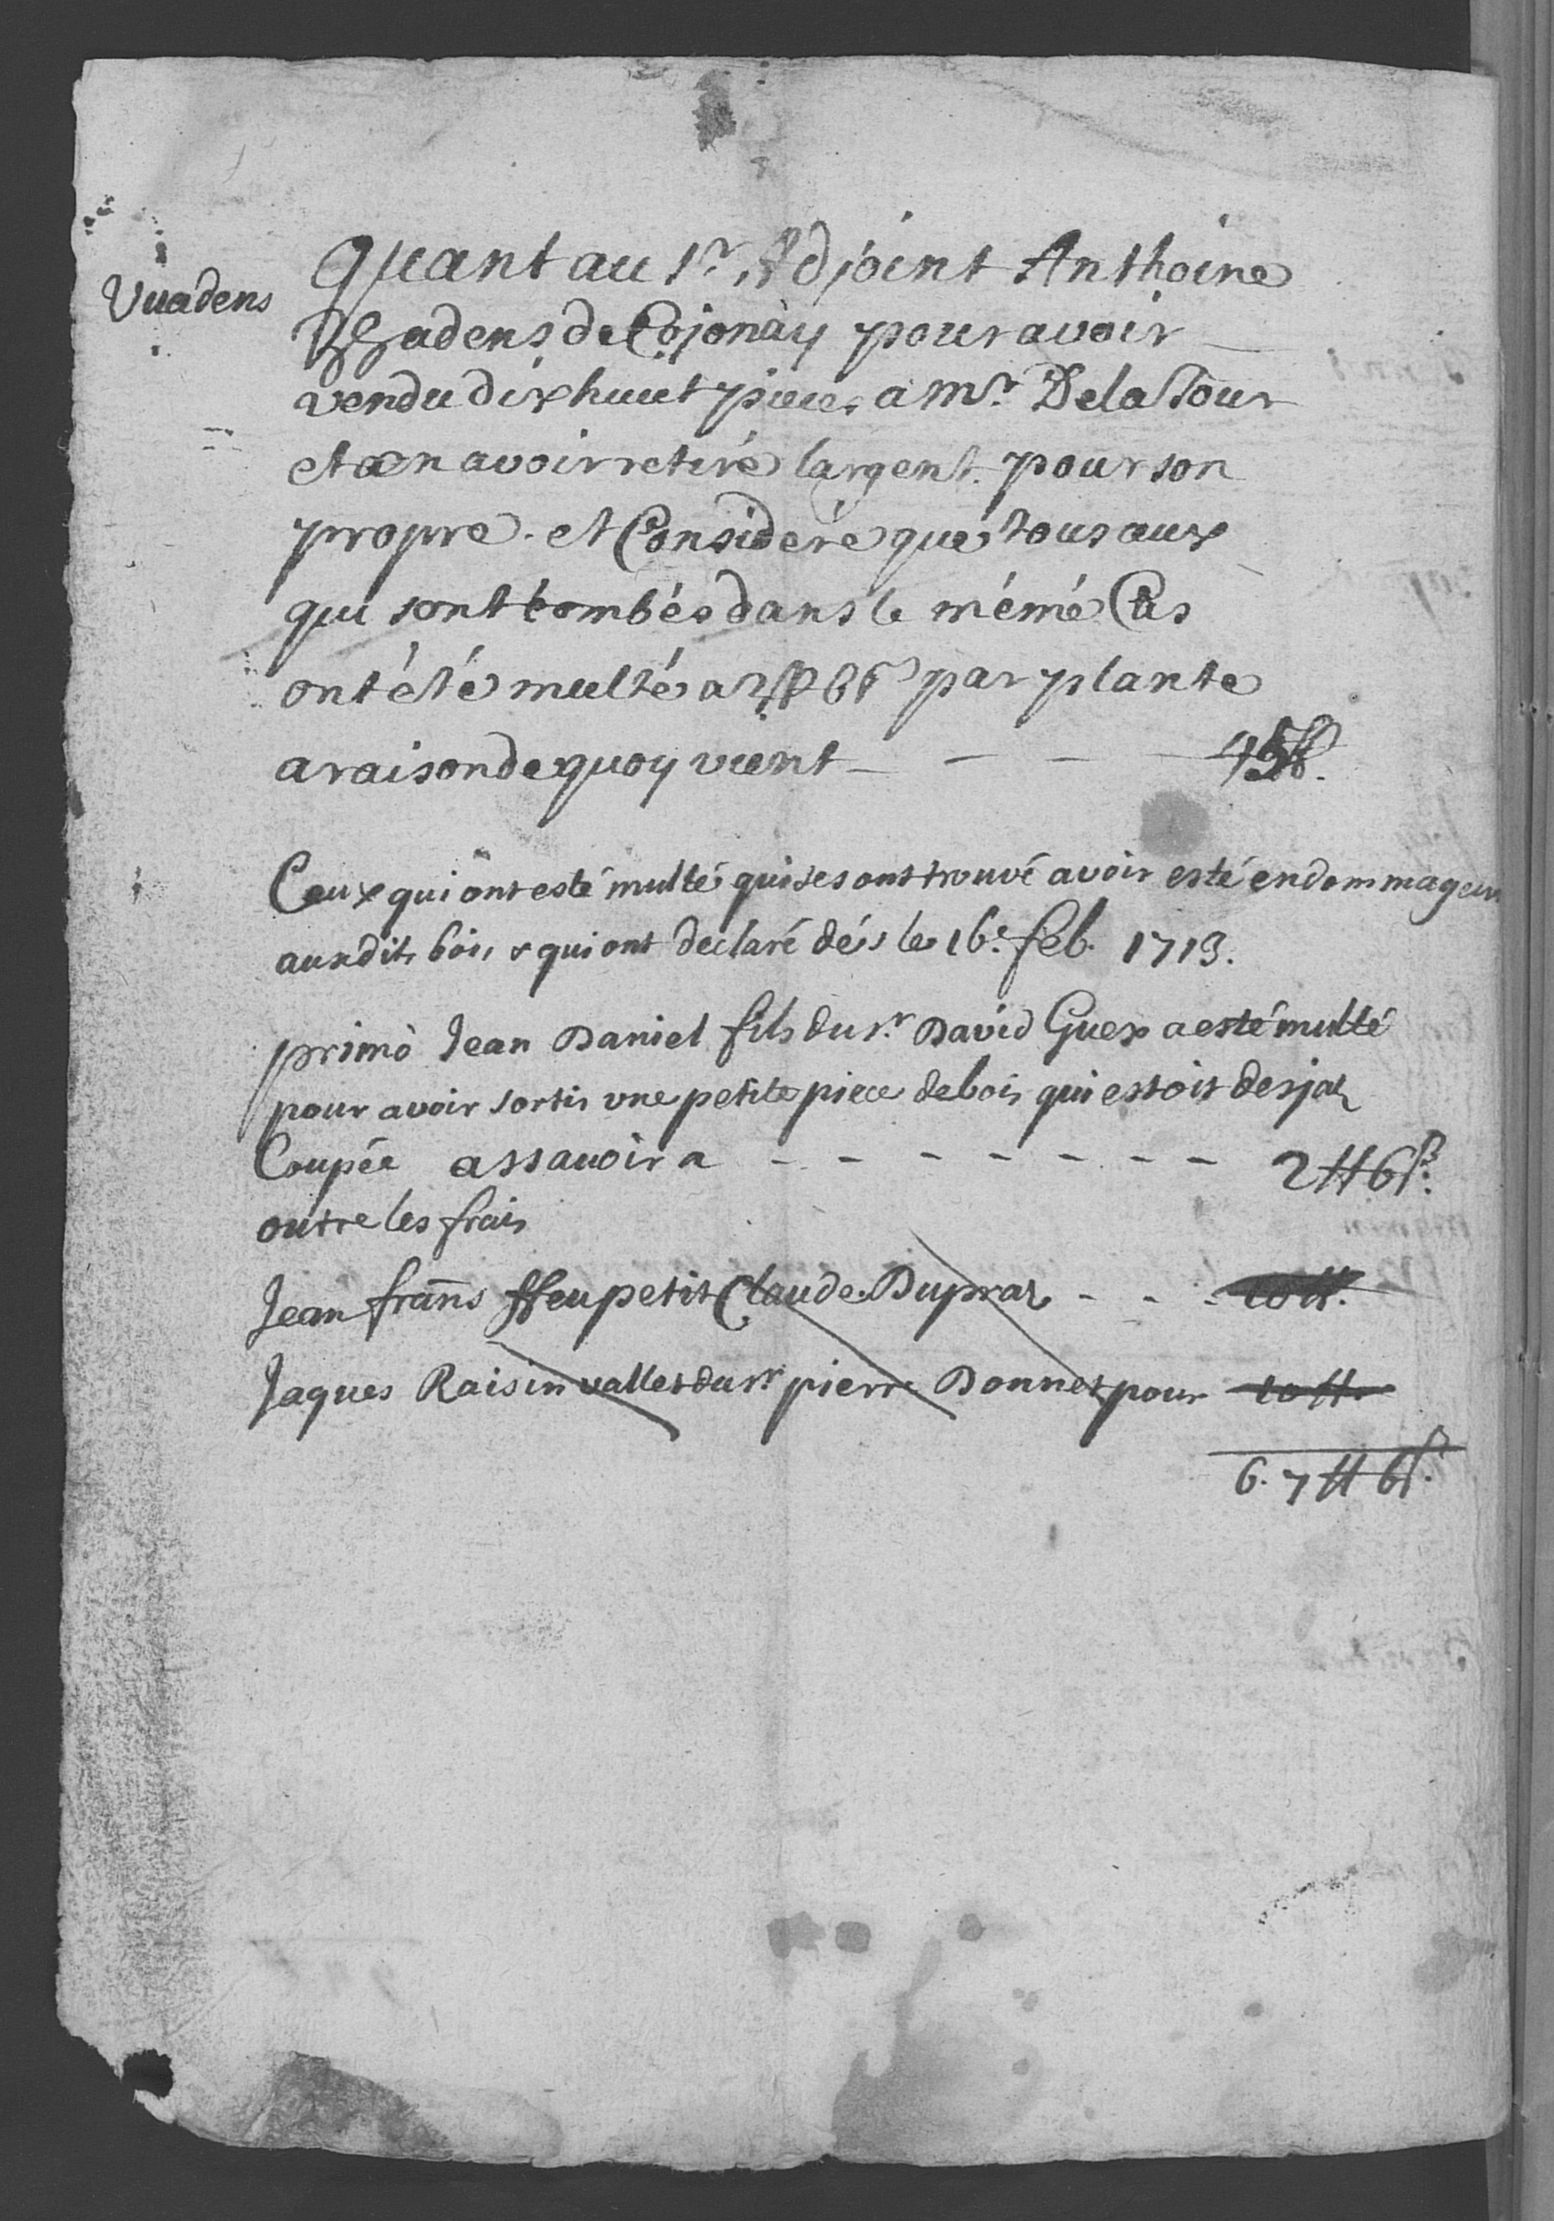 Vuadens
Quant au Sr. Adjoint Anthoine
Wadens de Cojonay pour avoir
vendu dix huict pieces a Mr. De la Tour
et en avoir retiré largent pour son
propre. et Consideré que tous aux
qui sont tombés dans le mémé Cas
ont été multé a 2 ff 6 s par plante
a raison de quoy vient - - - 45 ff.
Ceux qui ont esté multé qui se sont trouvé avoir esté endommageur
aux dits bois & qui ont declaré dés le 16e. feb. 1713.
primò Jean Daniel fils du sr. David Guex a esté multé
pour avoir sortis une petite piece de bois qui estoit desjaz
Coupée assavoir a - - - - - - - - 2 ff 6 s.
outre les frais
Jean frans ffeu petit Claude Dupraz - - - 10 ff.
Jaques Raisin vallet du sr. pierre Donnet pour 10 ff.
6. 7 ff 6 s.